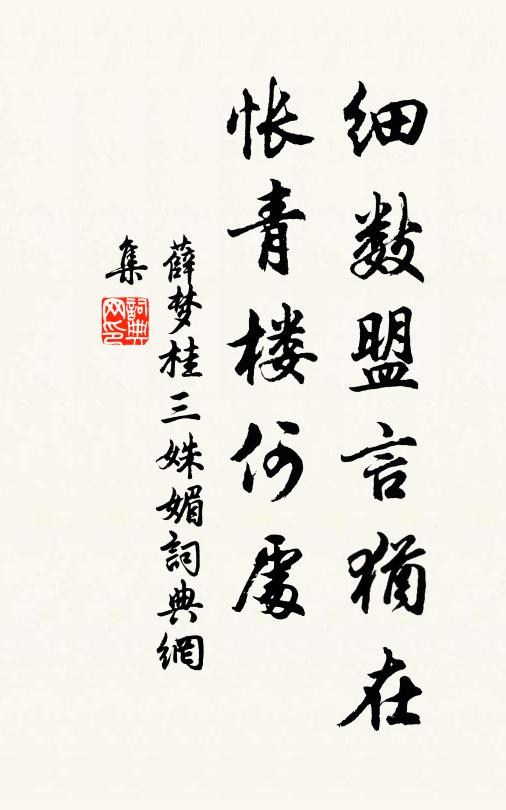 细数盟言犹在
怅青楼何處
薛梦桂三姝媚詞典網
集
詞典網印